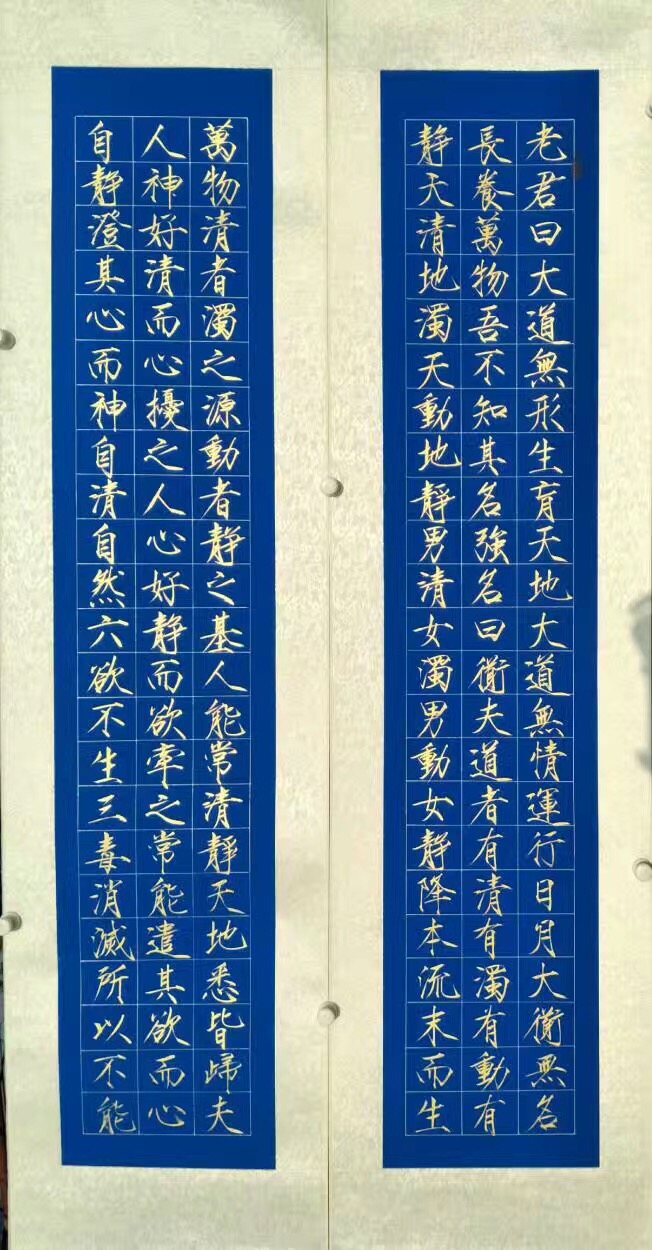 老君曰大道無形生育天地大道無情運行日月大衜無名
長養萬物吾不知其名強名曰衜夫道者有清有濁有動有
靜天清地濁天動地靜男清女濁男動女靜降本流末而生
萬物清者濁之源動者靜之基人能常清靜天地悉皆歸夫
人神好清而心擾之人心好靜而欲牽之常能遣其欲而心
自靜澄其心而神自清自然六欲不生三毒消滅所以不能